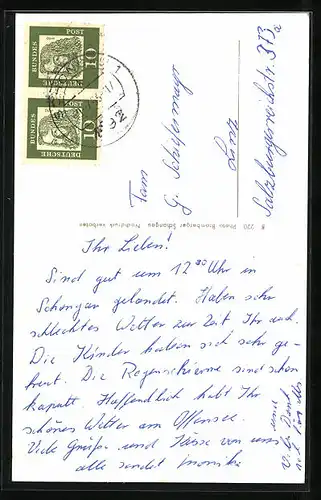 BUNDES POST
10
DEUTSCHE
BUNDES POST
10
DEUTSCHE
Fam
G.
Linz
Salzburgerreichstr. 313a
B 220 Photo Bromberger Schongau Nachdruck verboten
Ihr Lieben!
Sind gut um 12 30 Uhr in
Schongau gelandet. Haben sehr
schlechtes Wetter zur Zeit Ihr auch.
Die Kinder haben sich sehr ge-
freut. Die Regenschirme sind schon
kaputt. Hoffendlich habt Ihr
schönes Wetter am Offensee.
Viele Grüße und Küsse von uns
alle sendet Monika
und
V. L. Dank